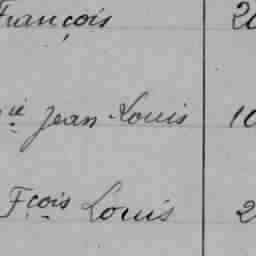 François 20
cié Jean-Louis 10
Fçois Louis 2